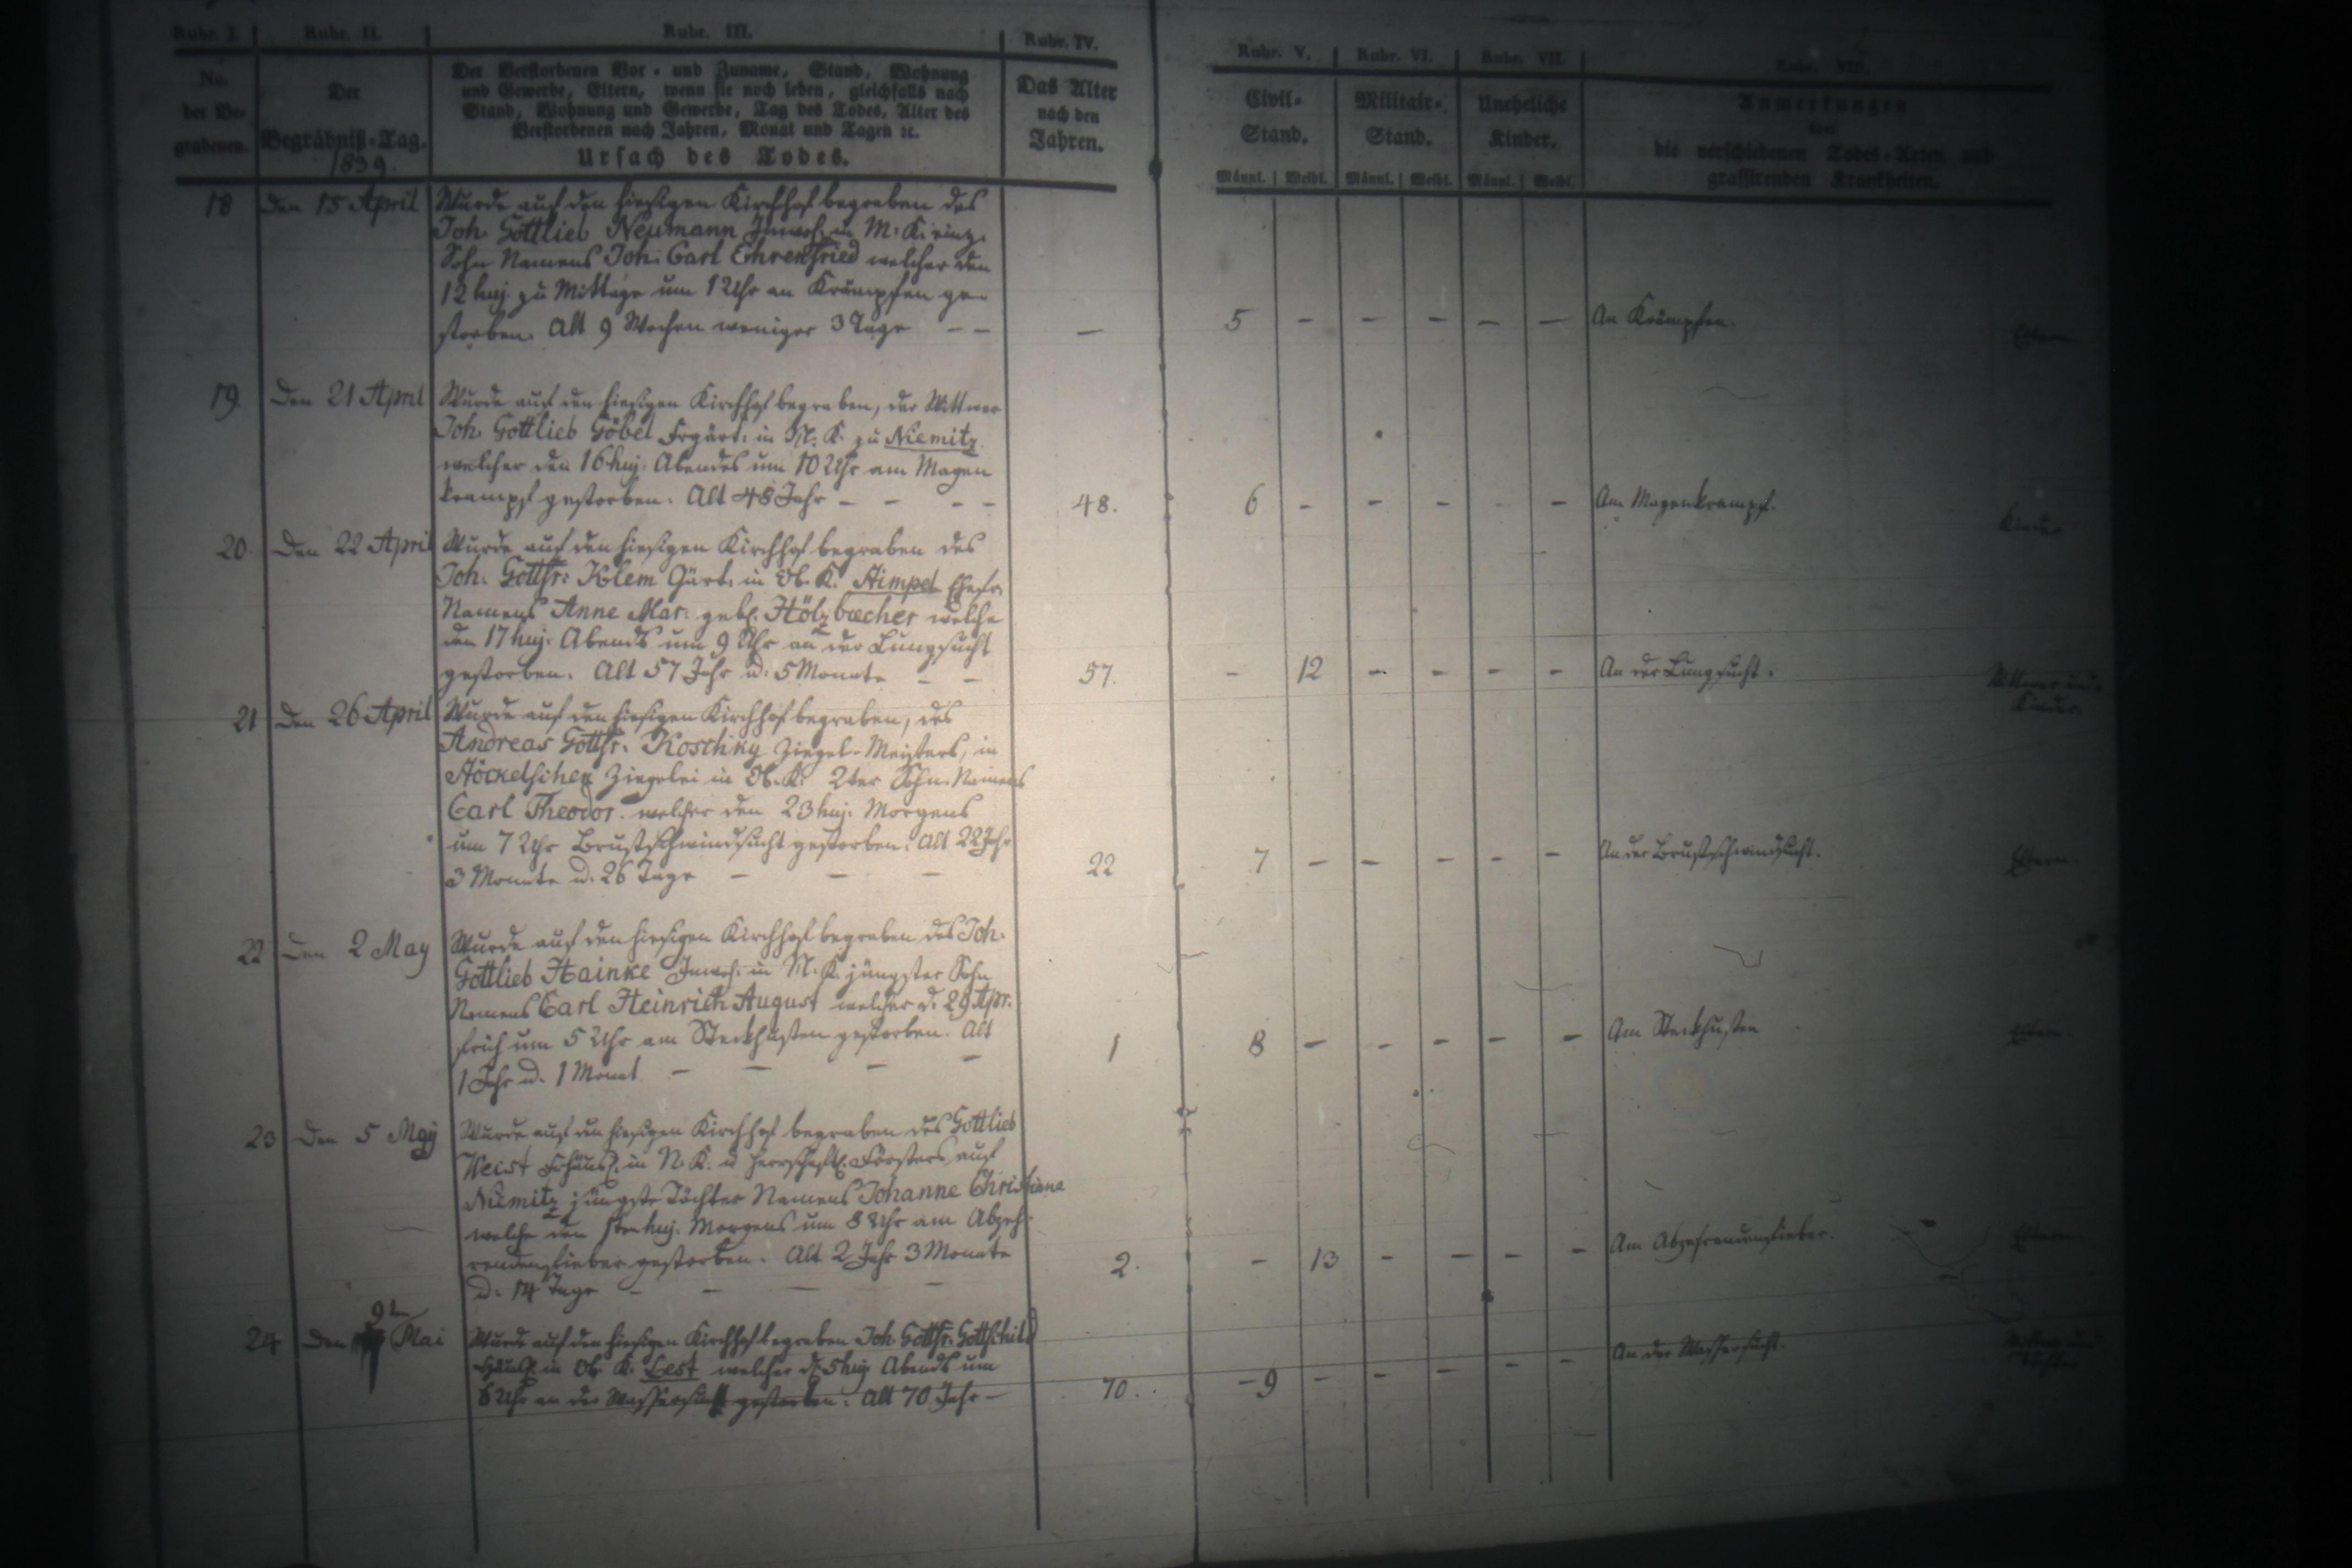 Rubr. I. Rubr. II. Rubr. III. Rubr. IV. Rubr. V. Rubr. VI. Rubr. VII. Rubr. VIII.
No. der Be-grabenen.
Der Begräbniß-Tag. 1839.
Der Verstorbenen Vor- und Zuname, Stand, Wohnung
und Gewerbe, Eltern, wenn sie noch leben, gleichfalls nach
Stand, Wohnung und Gewerbe, Tag des Todes, Alter des
Verstorbenen nach Jahren, Monat und Tagen ꝛc.
Ursach des Todes.
Das Alter
nach den
Jahren.
Civil-
Stand.
Militair-
Stand.
Uneheliche
Kinder.
Anmerkungen
über
die verschiedenen Todes-Arten und
grassirenden Krankheiten.
Männl. Weibl. Männl. Weibl. Männl. Weibl.
18 Den 15 April Wurde auf den hiesigen Kirchhof begraben des
Joh. Gottlieb Neumann Inwoh. in M. K. einz.
Sohn Namens Joh. Carl Ehrenfried welcher den
12 huj. zu Mittage um 12 Uhr an Krämpfen ge-
storben. Alt 9 Wochen weniger 3 Tage — — — 5 — — — — — An Krämpfen. Eltern
19 Den 21 April Wurde auf den hiesigen Kirchhof begraben, der Wittwer
Joh. Gottlieb Göbel Frgärt. in M. K. zu Niemitz
welcher den 16 huj. Abendes um 10 Uhr am Magen
krampf gestorben. Alt 48 Jahr — — — — 48. 6 — — — — — Am Magenkrampf. Kinder
20 Den 22 April Wurde auf den hiesigen Kirchhof begraben des
Joh. Gottfr. Klem Gärt. in Ob. K. Aimpel Ehefr.
Namens Anne Mar. geb. Hölzbæcher welche
den 17 huj. Abends um 9 Uhr an der Lungsucht
gestorben. Alt 57 Jahr u. 5 Monate — — 57. — 12 — — — — An der Lungsucht. Wittwer und
Kinder.
21 Den 26 April Wurde auf den hiesigen Kirchhof begraben, des
Andreas Gottfr. Koschky Ziegel-Meisters, in
Ziegelei in Ob. K. 2ter Sohn Namens
Carl Theodor welcher den 23 huj. Morgens
um 7 Uhr Brustschwindsucht gestorben. Alt 22 Jahr
3 Monate u. 26 Tage — — — 22 7 — — — — — An der Brustschwindsucht. Eltern.
22 Den 2 May Wurde auf den hiesigen Kirchhof begraben des Joh.
Gottlieb Hainke Inwoh. in M. K. jüngster Sohn
Namens Carl Heinrich August welcher d. 29 Apr.
früh um 5 Uhr am Steckhusten gestorben. Alt
1 Jahr u. 1 Monat — — — — 1 8 — — — — — Am Steckhusten Eltern
23 Den 5 May Wurde auf den hiesigen Kirchhof begraben des Gottlieb
Weist Frhäusl. in N. K. u herrschaftl. Försters auf
Niemitz jüngste Tochter Namens Johanne Christiane
welche den huj. Morgens um 8 Uhr am Abzeh-
rendenfieber gestorben. Alt 2 Jahr 3 Monate
u. 14 Tage — — — — 2. — 13 — — — — Am Abzehrendenfieber. Eltern.
24 Den 9t Mai Wurde auf den hiesigen Kirchhof begraben Joh. Gottfr. Gottschild
Häusl. in Ob. K. Lest welcher d. 5 huj. Abends um
6 Uhr an der Wassersucht gestorben. Alt 70 Jahr — 70. — 9 — — — — — An der Wassersucht.